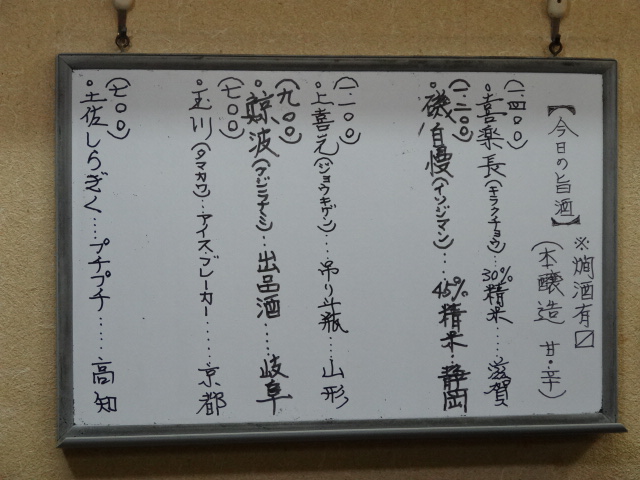 【今日の旨酒】
※燗酒有〼
(本醸造 甘・辛)
(一、四〇〇)
。喜楽長(キラクチョウ)…30%精米……滋賀
(一、二〇〇)
。磯自慢(イソジマン)…45%精米…静岡
(一、一〇〇)
。上喜元(ジョウキゲン)…吊り斗瓶…山形
(九〇〇)
。鯨波(クジラナミ)…出品酒……岐阜
(七〇〇)
。玉川(タマガワ)…アイス・ブレーカー……京都
(七〇〇)
。土佐しらぎく……プチプチ……高知